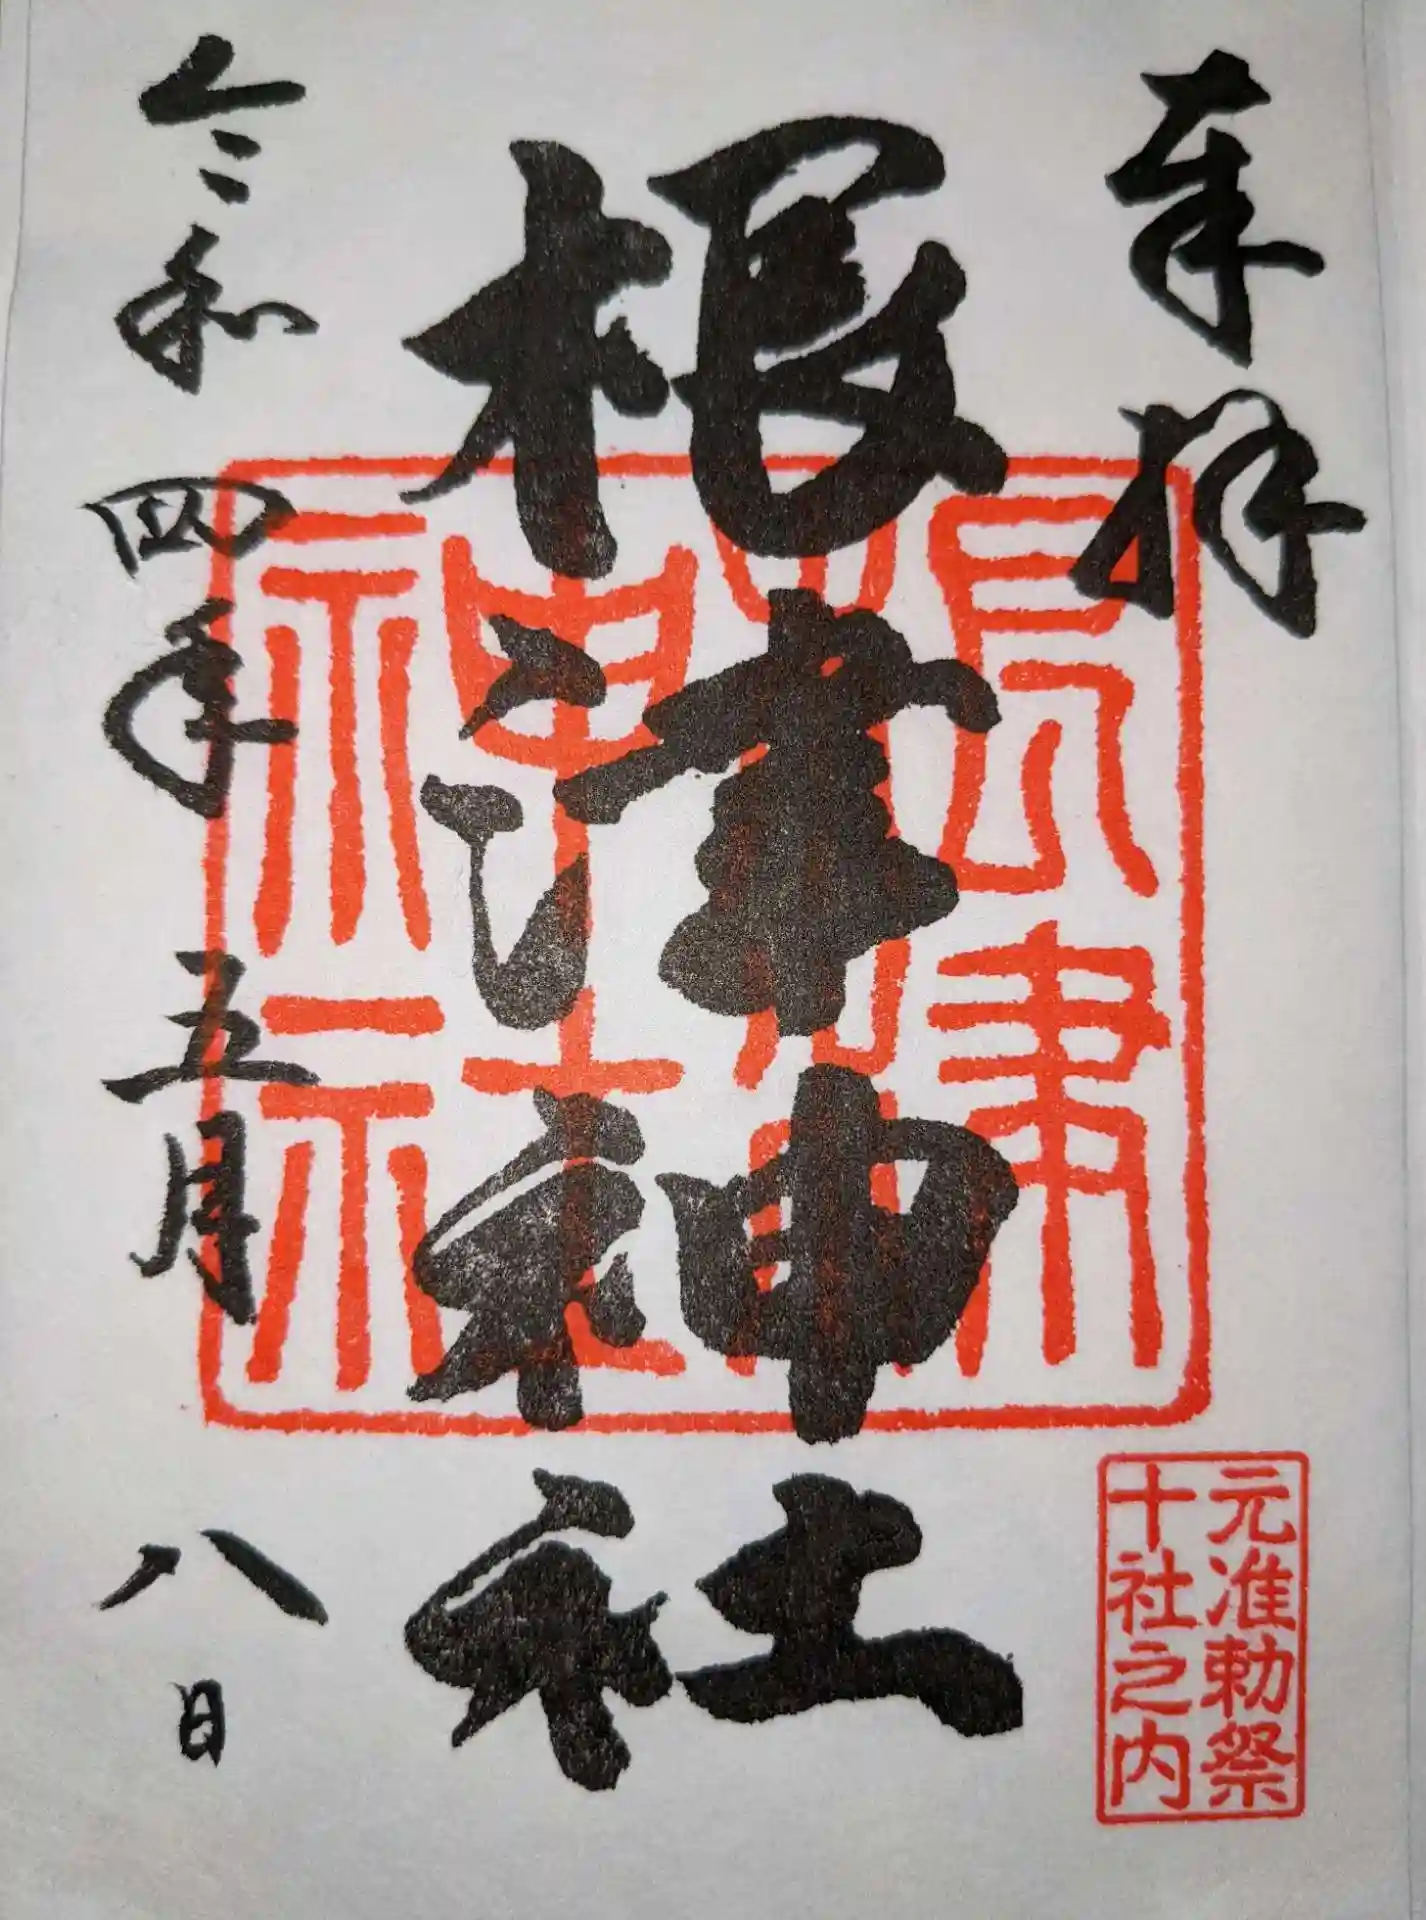 奉拝
根津神社
根津神社
元准勅祭
十社之内
令和四年五月八日